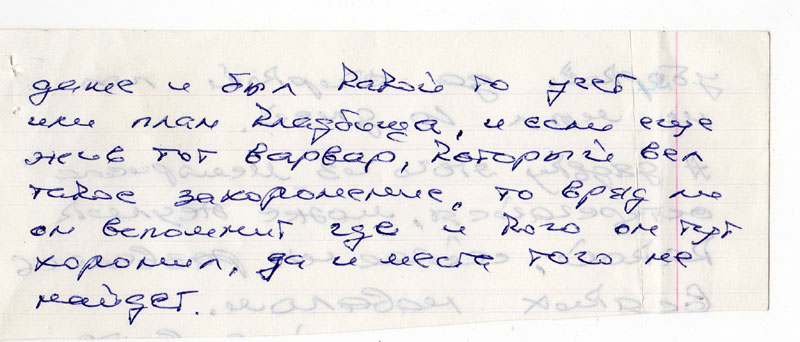 даже и был какой то учет
или план кладбища, и если еще
жив тот варвар, который вел
такое захоронение, то вряд ли
он вспомнит где и кого он тут
хоронил, да и места того не
найдет.